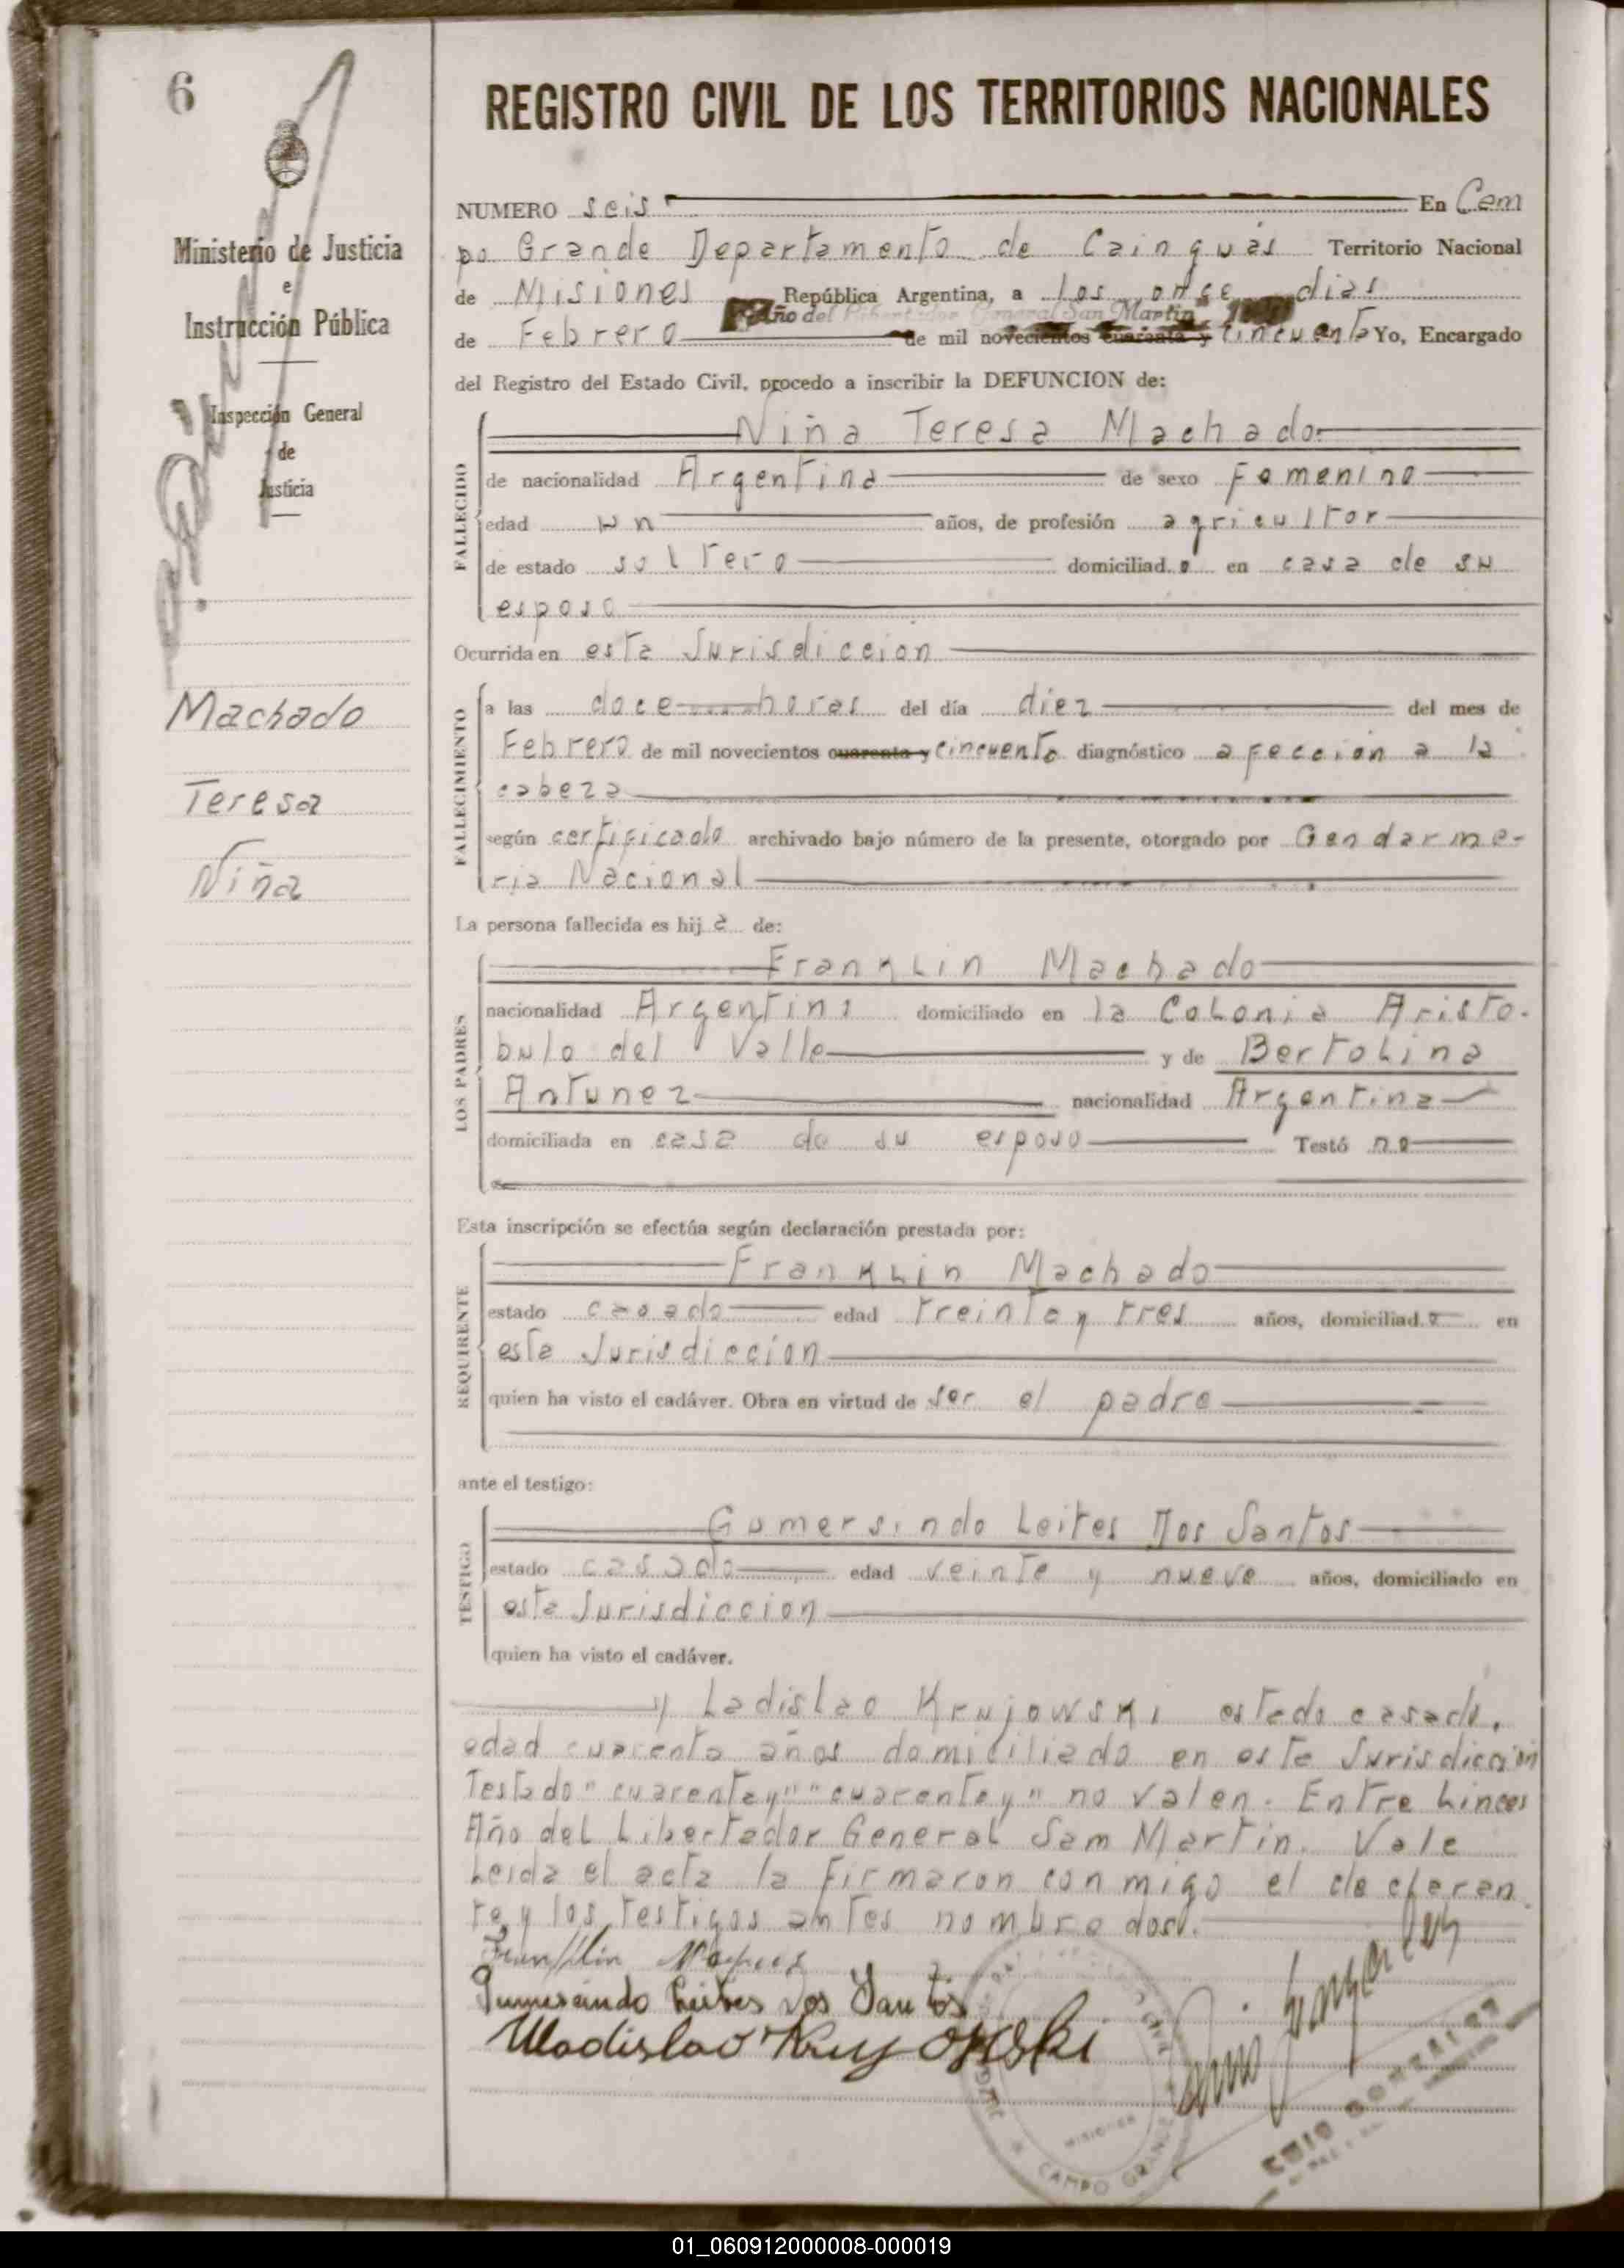 6
Ministerio de Justicia
e
Instrucción Pública
Inspección General
de
Justicia
Machado
Teresa
Niña
REGISTRO CIVIL DE LOS TERRITORIOS NACIONALES
NUMERO seis En Cam
po Grande Departamento de Cainguás Territorio Nacional
de Misiones República Argentina, a los onse dias
Año del Libertador General San Martin
de Febrero de mil novecientos cuarenta y cincuenta Yo, Encargado
del Registro del Estado Civil, procedo a inscribir la DEFUNCION de:
FALLECIDO
Niña Teresa Machado
de nacionalidad Argentina de sexo Femenino
edad un años, de profesión agricultor
de estado soltero domiciliad o en casa de su
esposo
Ocurrida en esta Jurisdiccion
FALLECIMIENTO
a las doce horas del día diez del mes de
Febrero de mil novecientos cuarenta y cincuenta diagnóstico afeccion a la
cabeza
según certificado archivado bajo número de la presente, otorgado por Gendarme-
ria Nacional
La persona fallecida es hij a de:
LOS PADRES
Franklin Machado
nacionalidad Argentina domiciliado en la Colonia Aristo-
bulo del Valle y de Bertolina
Antunez nacionalidad Argentina
domiciliada en casa de su esposo Testó no
Esta inscripción se efectúa según declaración prestada por:
REQUIRENTE
Franklin Machado
estado casado edad treinta y tres años, domiciliad o en
esta Jurisdiccion
quien ha visto el cadáver. Obra en virtud de ser el padre
ante el testigo:
TESTIGO
Gumersindo Leites Dos Santos
estado casado edad veinte y nueve años, domiciliado en
esta Jurisdiccion
quien ha visto el cadáver.
y Ladislao Krujowski estado casado,
edad cuarenta años domiciliado en esta Jurisdiccion
Testado "cuarenta y" "cuarenta y" no valen. Entre Linees
Año del Libertador General Sam Martin. Vale
Leida el acta la firmaron conmigo el declaran
te y los testigos antes nombrados.
Franklin
Gumersindo Leites Dos Santos
Wladislao Krujowski
MISIONES
CAMPO GRANDE
GONZALEZ
01_060912000008-000019